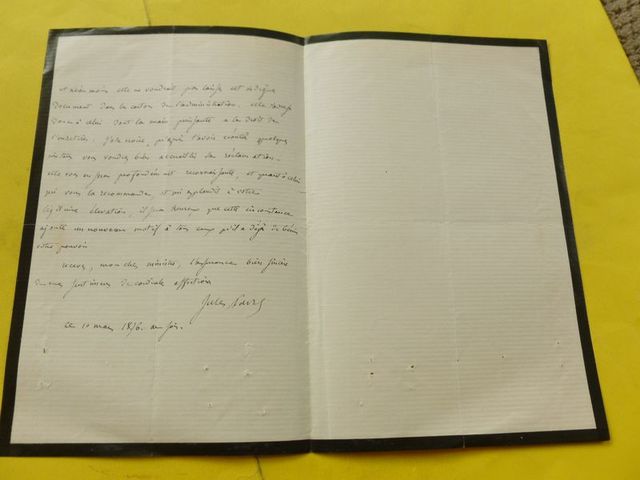 et néanmoins elle ne voudrait pas laisser cet
document dans les cartons de l'administration. elle
donc à celui dont la main puissante a le droit de
J'ose croire, qu'après l'avoir écoutée quelques
instans vous voudrez bien accueillir sa réclamation.
elle vous en sera profondément reconnaissante, et quant à celui
qui vous la recommande, et qui applaudit à votre
légitime élévation, il sera heureux que cette circonstance
ajoute un nouveau motif à tous ceux qu'il a déjà de bénir
votre pouvoir
recevez, mon cher ministre, l'assurance bien sincère
de mes sentimens de cordiale affection
Jules Favre
ce 10 mars au soir.